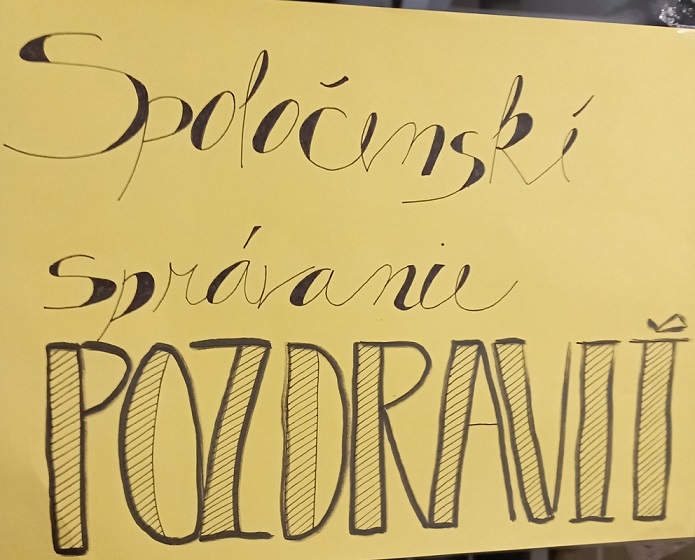 Spoločenské
správanie
POZDRAVIŤ